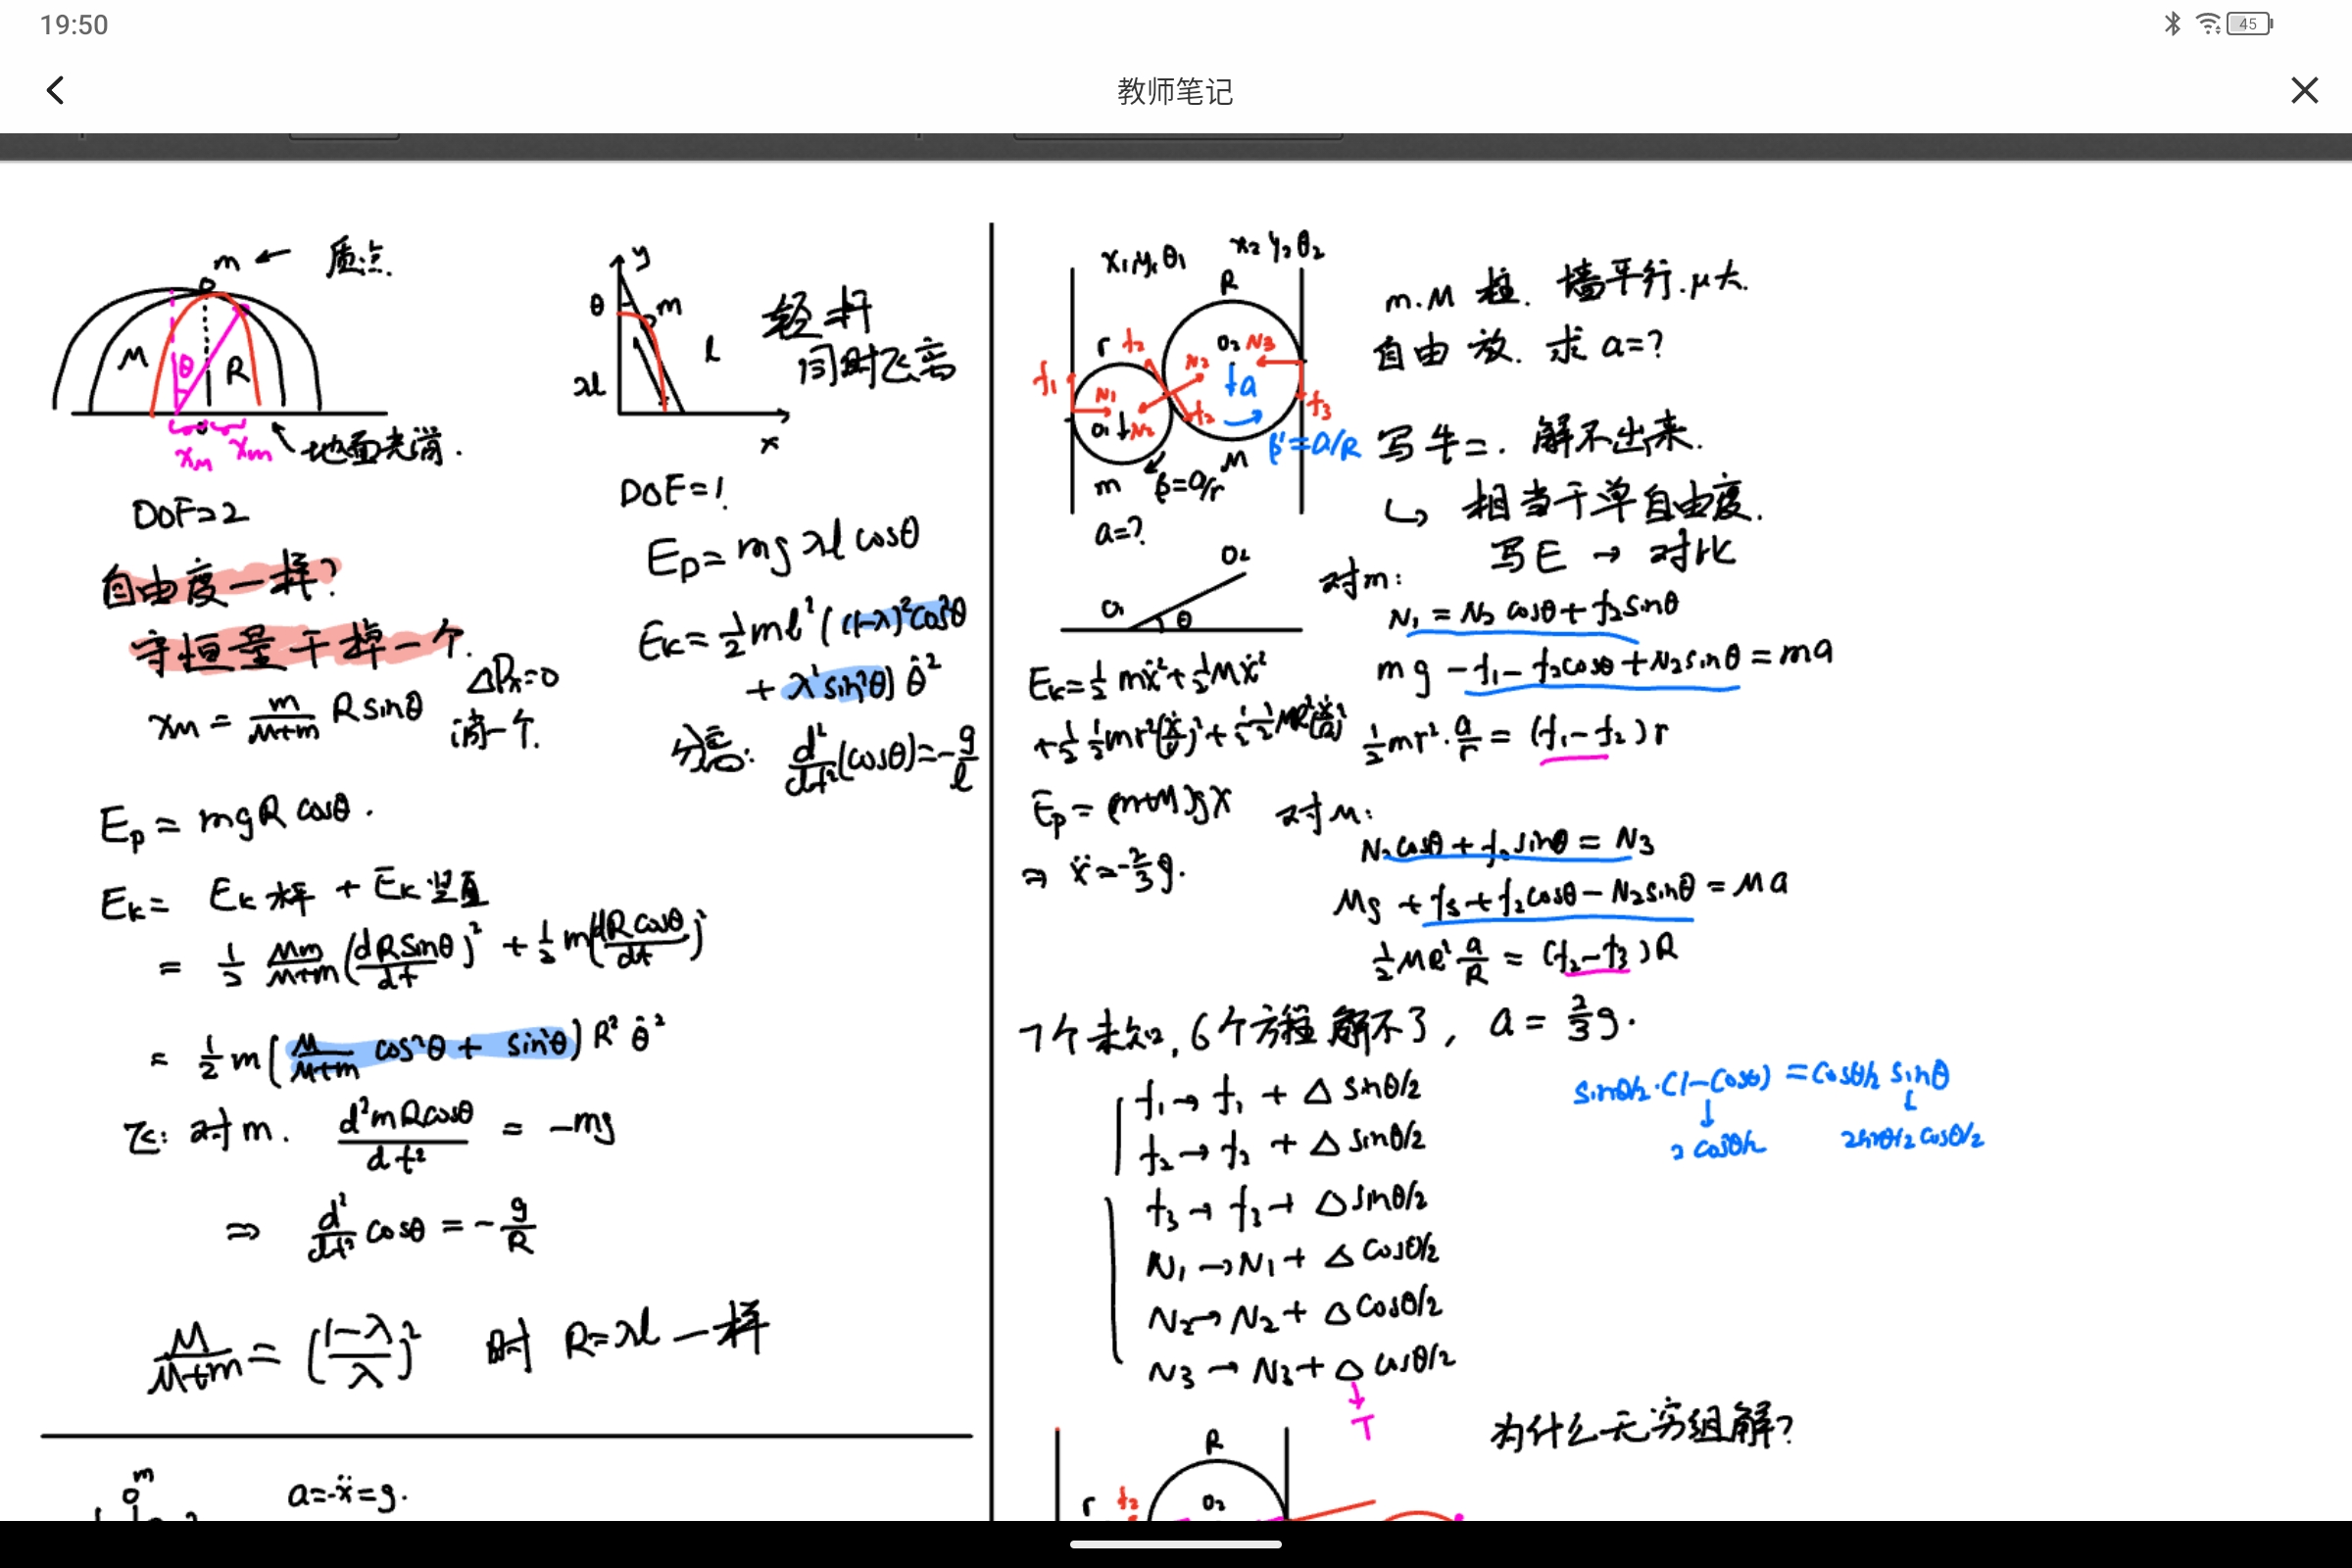 19:50
45
教师笔记
m ← 质点.
M θ R
x_M x_m
地面光滑.
DOF=2
自由度一样?
守恒量干掉一个.
ΔPx=0
消一个.
x_M = m/(M+m) R sinθ
Ep = mgR cosθ.
Ek = Ek水平 + Ek竖直
= 1/2 Mm/(M+m) (dR sinθ/dt)² + 1/2 m(dR cosθ/dt)²
= 1/2 m(M/(M+m) cos²θ + sin²θ) R² θ̇²
飞: 对m. d²mRcosθ/dt² = -mg
⇒ d²/dt² cosθ = -g/R
M/(M+m) = ((1-λ)/λ)² 时 R=λl 一样
m
a=-ẍ=g.
y
θ m
λl l
x
轻杆
同时飞离
DOF=1
Ep = mgλl cosθ
Ek = 1/2 ml²((1-λ)²cos²θ
+ λ²sin²θ) θ̇²
分离: d²/dt²(cosθ) = -g/l
x₁ y₁ θ₁ x₂ y₂ θ₂
R
r f₂ O₂ N₃
f₁ N₁ N₂ a
O₁ N₂ f₂ f₃
m β=a/r M β'=a/R
a=?
m.M 柱. 墙平行. μ大.
自由放. 求 a=?
写牛二. 解不出来.
↳ 相当于单自由度.
写E → 对比
O₁ θ O₂
对m:
N₁ = N₂ cosθ + f₂ sinθ
mg - f₁ - f₂cosθ + N₂sinθ = ma
1/2 mr²·a/r = (f₁-f₂)r
Ek = 1/2 mẋ² + 1/2 Mẋ²
+ 1/2 1/2 mr²(ẋ/r)² + 1/2 1/2 MR²(ẋ/R)²
Ep = (m+M)gx
⇒ ẍ = -2/3 g.
对M:
N₂cosθ + f₂sinθ = N₃
Mg + f₃ + f₂cosθ - N₂sinθ = Ma
1/2 MR² a/R = (f₂-f₃)R
7个未知, 6个方程 解不了, a = 2/3 g.
f₁ → f₁ + Δ sinθ/2
f₂ → f₂ + Δ sinθ/2
f₃ → f₃ + Δ sinθ/2
N₁ → N₁ + Δ cosθ/2
N₂ → N₂ + Δ cosθ/2
N₃ → N₃ + Δ cosθ/2
T
sinθ/2·(1-cosθ) = cosθ/2 sinθ
2cos²θ/2 2sinθ/2 cosθ/2
为什么无穷组解?
R
r f₂ O₂